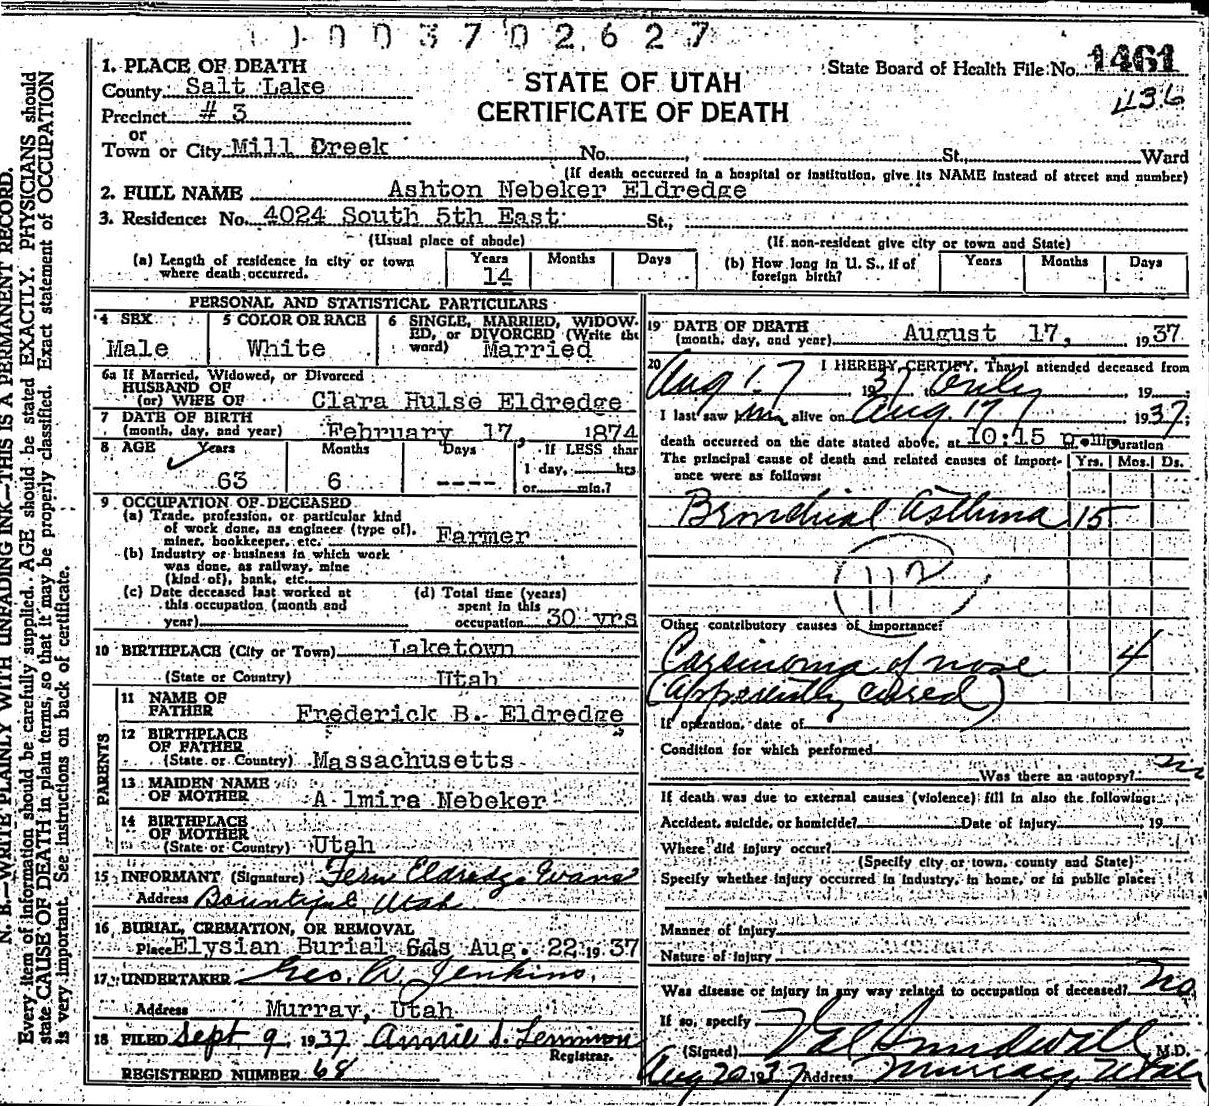 1003702627
1. PLACE OF DEATH
County Salt Lake
Precinct # 3
or
Town or City Mill Dreek No. , St., Ward
STATE OF UTAH
CERTIFICATE OF DEATH
State Board of Health File No. 1461
436
(If death occurred in a hospital or institution, give its NAME instead of street and number)
2. FULL NAME Ashton Nebeker Eldredge
3. Residence: No. 4024 South 5th East St.,
(Usual place of abode) (If non-resident give city or town and State)
(a) Length of residence in city or town where death occurred. Years 14 Months Days
(b) How long in U. S., if of foreign birth? Years Months Days
PERSONAL AND STATISTICAL PARTICULARS
4 SEX Male
5 COLOR OR RACE White
6 SINGLE, MARRIED, WIDOWED, or DIVORCED (Write the word) Married
6a If Married, Widowed, or Divorced
HUSBAND OF
(or) WIFE OF Clara Hulse Eldredge
7 DATE OF BIRTH
(month, day, and year) February 17, 1874
8 AGE Years 63 Months 6 Days ---- If LESS than
1 day, hrs
or min.?
9 OCCUPATION OF DECEASED
(a) Trade, profession, or particular kind
of work done, as engineer (type of),
miner, bookkeeper, etc. Farmer
(b) Industry or business in which work
was done, as railway, mine
(kind of), bank, etc.
(c) Date deceased last worked at
this occupation (month and
year)
(d) Total time (years)
spent in this
occupation 30 yrs
10 BIRTHPLACE (City or Town) Laketown
(State or Country) Utah
PARENTS
11 NAME OF
FATHER Frederick B. Eldredge
12 BIRTHPLACE
OF FATHER
(State or Country) Massachusetts
13 MAIDEN NAME
OF MOTHER A lmira Nebeker
14 BIRTHPLACE
OF MOTHER
(State or Country) Utah
15 INFORMANT (Signature) Fern Eldredge Evans
Address Bountiful, Utah
16 BURIAL, CREMATION, OR REMOVAL
Place Elysian Burial Gds Date Aug. 22 1937
17 UNDERTAKER Geo. A. Jenkins.
Address Murray, Utah
18 FILED Sept 9 1937 Annie S. Lemmon
Registrar.
REGISTERED NUMBER 68
19 DATE OF DEATH
(month, day, and year) August 17, 1937
20 I HEREBY CERTIFY, That I attended deceased from
Aug 17 1937 to only 19
I last saw him alive on Aug. 17 1937;
death occurred on the date stated above, at 10:15 p.m. Duration
The principal cause of death and related causes of importance were as follows: Yrs. Mos. Ds.
Bronchial Asthma 15
112
Other contributory causes of importance:
Carsinoma of nose 4
(apparently cured)
If operation, date of
Condition for which performed
Was there an autopsy? no
If death was due to external causes (violence) fill in also the following:
Accident, suicide, or homicide? Date of injury 19
Where did injury occur?
(Specify city or town, county and State)
Specify whether injury occurred in industry, in home, or in public place:
Manner of injury
Nature of injury
Was disease or injury in any way related to occupation of deceased? no
If so, specify
(Signed) Val Sundwall M.D.
Aug 20 1937 Address Murray, Utah
N. B.—WRITE PLAINLY WITH UNFADING INK—THIS IS A PERMANENT RECORD.
Every item of information should be carefully supplied. AGE should be stated EXACTLY. PHYSICIANS should
state CAUSE OF DEATH in plain terms, so that it may be properly classified. Exact statement of OCCUPATION
is very important. See instructions on back of certificate.